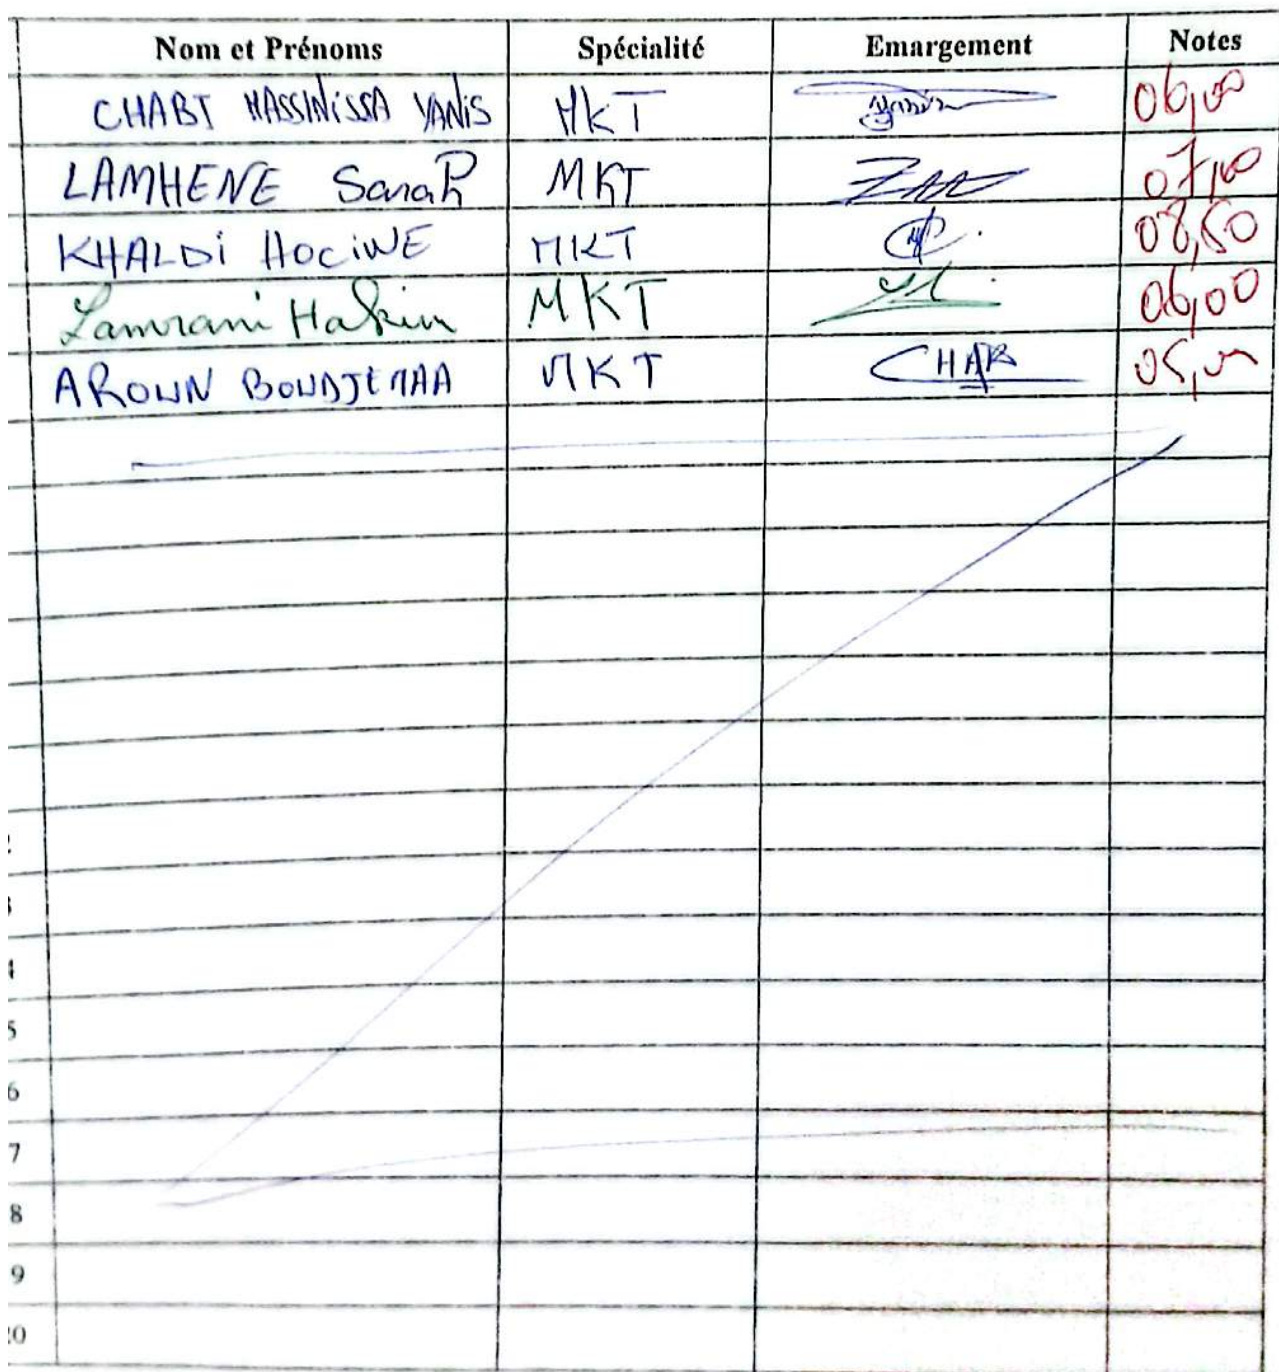 Nom et Prénoms Spécialité Emargement Notes
CHABI MASSINISSA YANIS MKT 06,00
LAMHENE Sarah MKT 07,00
KHALDI HOCINE MKT 08,50
Lamrani Hakim MKT 06,00
AROUN BOUDJEMAA MKT CHAB 05,00
4
5
6
7
8
9
20